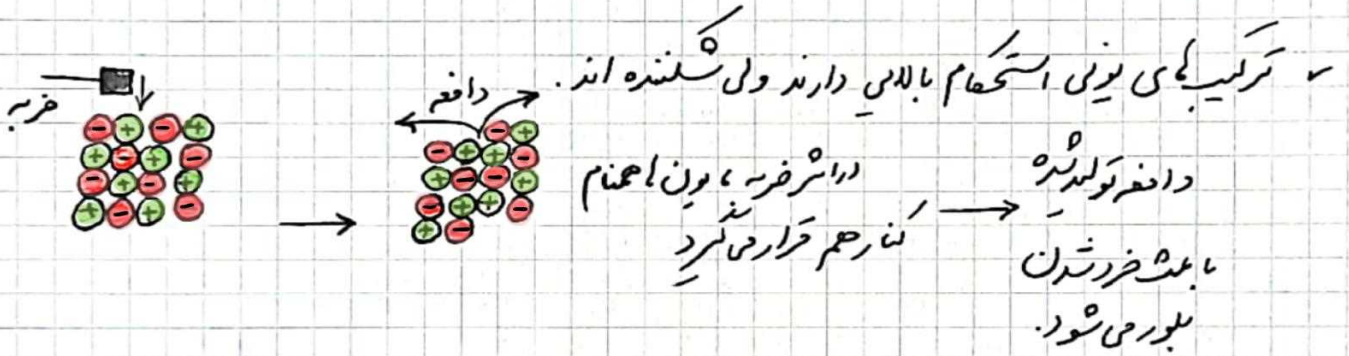 ✓ ترکیب‌های یونی استحکام بالایی دارند ولی شکننده اند.
ضربه
دافعه
در اثر ضربه، یون‌ها همنام
کنار هم قرار می‌گیرد
دافعه تولید شده
باعث خرد شدن
بلور می‌شود.